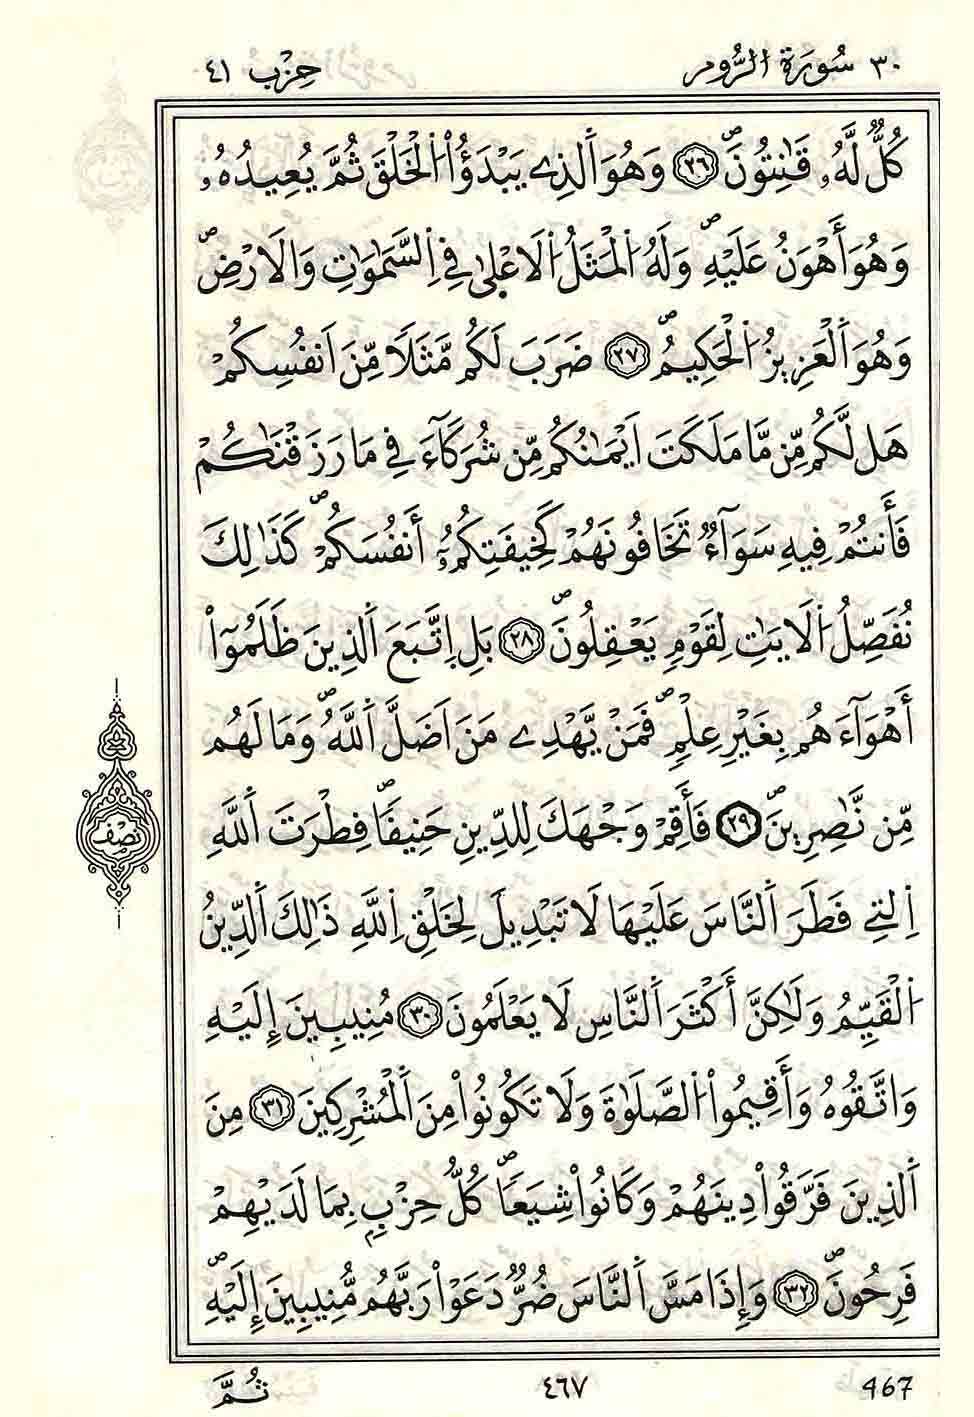 ٣٠ سُورَةُ الرُّومِ حِزْب ٤١
كُلٌّ لَّهُۥ قَٰنِتُونَۖ ٢٦ وَهُوَ اَ۬لذِے يَبْدَؤُاْ اُ۬لْخَلْقَ ثُمَّ يُعِيدُهُۥ
وَهُوَ أَهْوَنُ عَلَيْهِۖ وَلَهُ اُ۬لْمَثَلُ اُ۬لَاعْلَىٰ فِے اِ۬لسَّمَٰوَٰتِ وَالَارْضِۖ
وَهُوَ اَ۬لْعَزِيزُ اُ۬لْحَكِيمُۖ ٢٧ ضَرَبَ لَكُم مَّثَلاٗ مِّنَ اَنفُسِكُمْ
هَل لَّكُم مِّن مَّا مَلَكَتَ اَيْمَٰنُكُم مِّن شُرَكَآءَ فِے مَا رَزَقْنَٰكُمْ
فَأَنتُمْ فِيهِ سَوَآءٞ تَخَافُونَهُمْ كَخِيفَتِكُمُۥٓ أَنفُسَكُمْۖ كَذَٰلِكَ
نُفَصِّلُ اُ۬لَايَٰتِ لِقَوْمٖ يَعْقِلُونَۖ ٢٨ بَلِ اِ۪تَّبَعَ اَ۬لذِينَ ظَلَمُوٓاْ
أَهْوَآءَهُم بِغَيْرِ عِلْمٖۖ فَمَنْ يَّهْدِے مَنَ اَضَلَّ اَ۬للَّهُۖ وَمَا لَهُم
مِّن نَّٰصِرِينَۖ ٢٩ فَأَقِمْ وَجْهَكَ لِلدِّينِ حَنِيفاٗۖ فِطْرَتَ اَ۬للَّهِ
اِ۬لتِے فَطَرَ اَ۬لنَّاسَ عَلَيْهَا لَا تَبْدِيلَ لِخَلْقِ اِ۬للَّهِ ذَٰلِكَ اَ۬لدِّينُ
اُ۬لْقَيِّمُ وَلَٰكِنَّ أَكْثَرَ اَ۬لنَّاسِ لَا يَعْلَمُونَ ٣٠ مُنِيبِينَ إِلَيْهِ
وَاتَّقُوهُ وَأَقِيمُواْ اُ۬لصَّلَوٰةَ وَلَا تَكُونُواْ مِنَ اَ۬لْمُشْرِكِينَ ٣١ مِنَ
اَ۬لذِينَ فَرَّقُواْ دِينَهُمْ وَكَانُواْ شِيَعاٗۖ كُلُّ حِزْبِۢ بِمَا لَدَيْهِمْ
فَرِحُونَۖ ٣٢ وَإِذَا مَسَّ اَ۬لنَّاسَ ضُرّٞ دَعَوْاْ رَبَّهُم مُّنِيبِينَ إِلَيْهِۖ
نِصْف
ثُمَّ ٤٦٧ 467